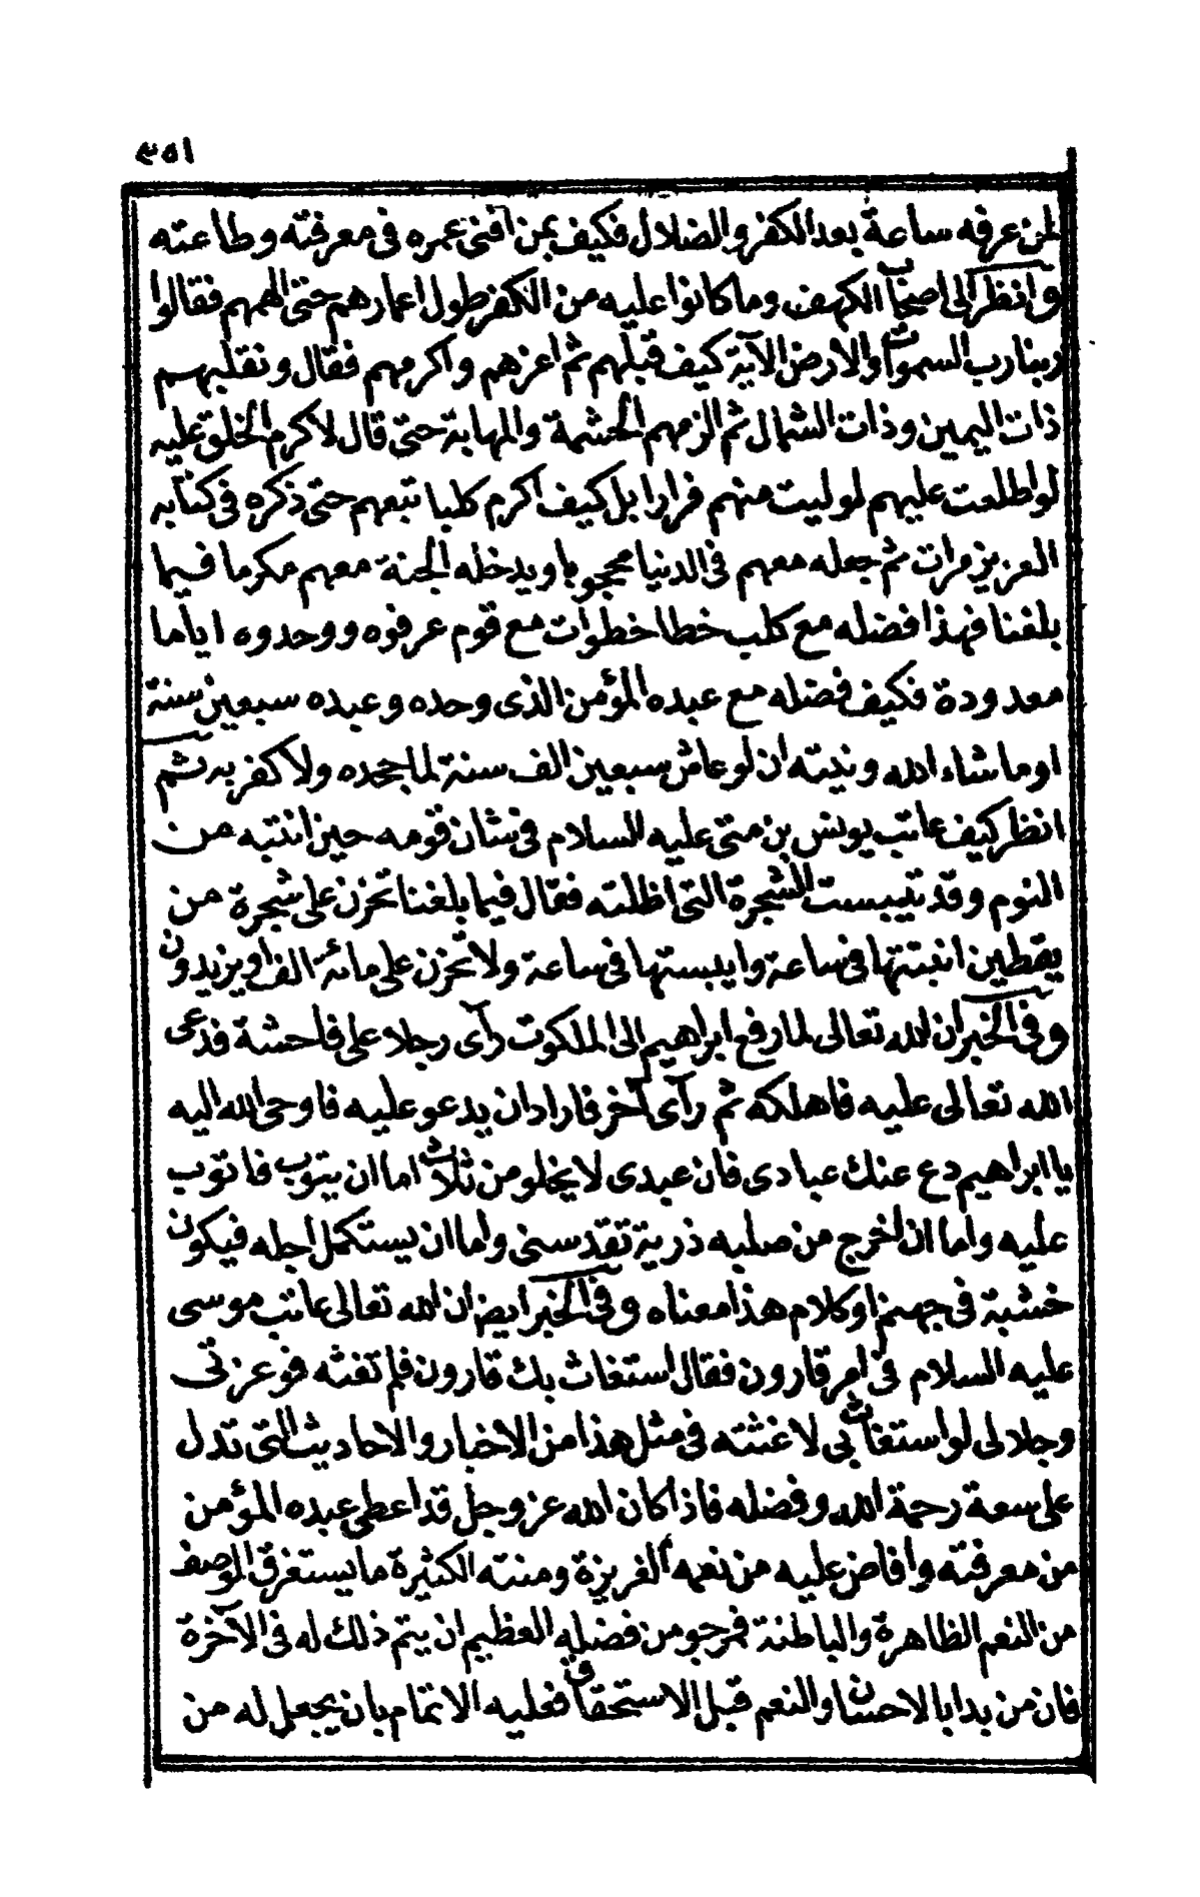 ٣٥١
لمن عرفه ساعة بعد الكفر والضلال فكيف بمن افنى عمره فى معرفته وطاعته
وانظر الى اصحاب الكهف وما كانوا عليه من الكفر طول اعمارهم حتى الهمهم فقالوا
ربنا رب السموات والارض الآية كيف قبلهم ثم اعزهم واكرمهم فقال ونقلبهم
ذات اليمين وذات الشمال ثم الزمهم الحشمة والمهابة حتى قال لاكرم الخلق عليه
لو اطلعت عليهم لوليت منهم فرارا بل كيف اكرم كلبا تبعهم حتى ذكره فى كتابه
العزيز مرات ثم جعله معهم فى الدنيا محجوبا ويدخله الجنة معهم مكرما فيما
بلغنا فهذا فضله مع كلب خطا خطوات مع قوم عرفوه ووحدوه اياما
معدودة فكيف فضله مع عبده المؤمن الذى وحده وعبده سبعين سنة
او ما شاء الله ونيته ان لو عاش سبعين الف سنة لما جحده ولا كفر به ثم
انظر كيف عاتب يونس بن متى عليه السلام فى شان قومه حين انتبه من
النوم وقد تيبست الشجرة التى اظلته فقال فيما بلغنا تحزن على شجرة من
يقطين انبتتها فى ساعة وايبستها فى ساعة ولا تحزن على مائة الف او يزيدون
وفى الخبر ان الله تعالى لما رفع ابراهيم الى الملكوت رآى رجلا على فاحشة فدعى
الله تعالى عليه فاهلكه ثم رآى آخر فاراد ان يدعو عليه فاوحى الله اليه
يا ابراهيم دع عنك عبادى فان عبدى لا يخلو من ثلاث اما ان يتوب فاتوب
عليه واما ان اخرج من صلبه ذرية تقدسنى واما ان يستكمل اجله فيكون
خشبة فى جهنم او كلام هذا معناه وفى الخبر ايض ان الله تعالى عاتب موسى
عليه السلام فى امر قارون فقال استغاث بك قارون فلم تغثه فوعزتى
وجلالى لو استغاث بى لاغثته فى مثل هذا من الاخبار والاحاديث التى تدل
على سعة رحمة الله وفضله فاذا كان الله عز وجل قد اعطى عبده المؤمن
من معرفته وافاض عليه من نعمه الغزيزة ومنته الكثيرة ما يستغرق الوصف
من النعم الظاهرة والباطنة فرجو من فضله العظيم ان يتم ذلك له فى الآخرة
فان من بدا بالاحسان والنعم قبل الاستحقاق فعليه الاتمام بان يجعل له من